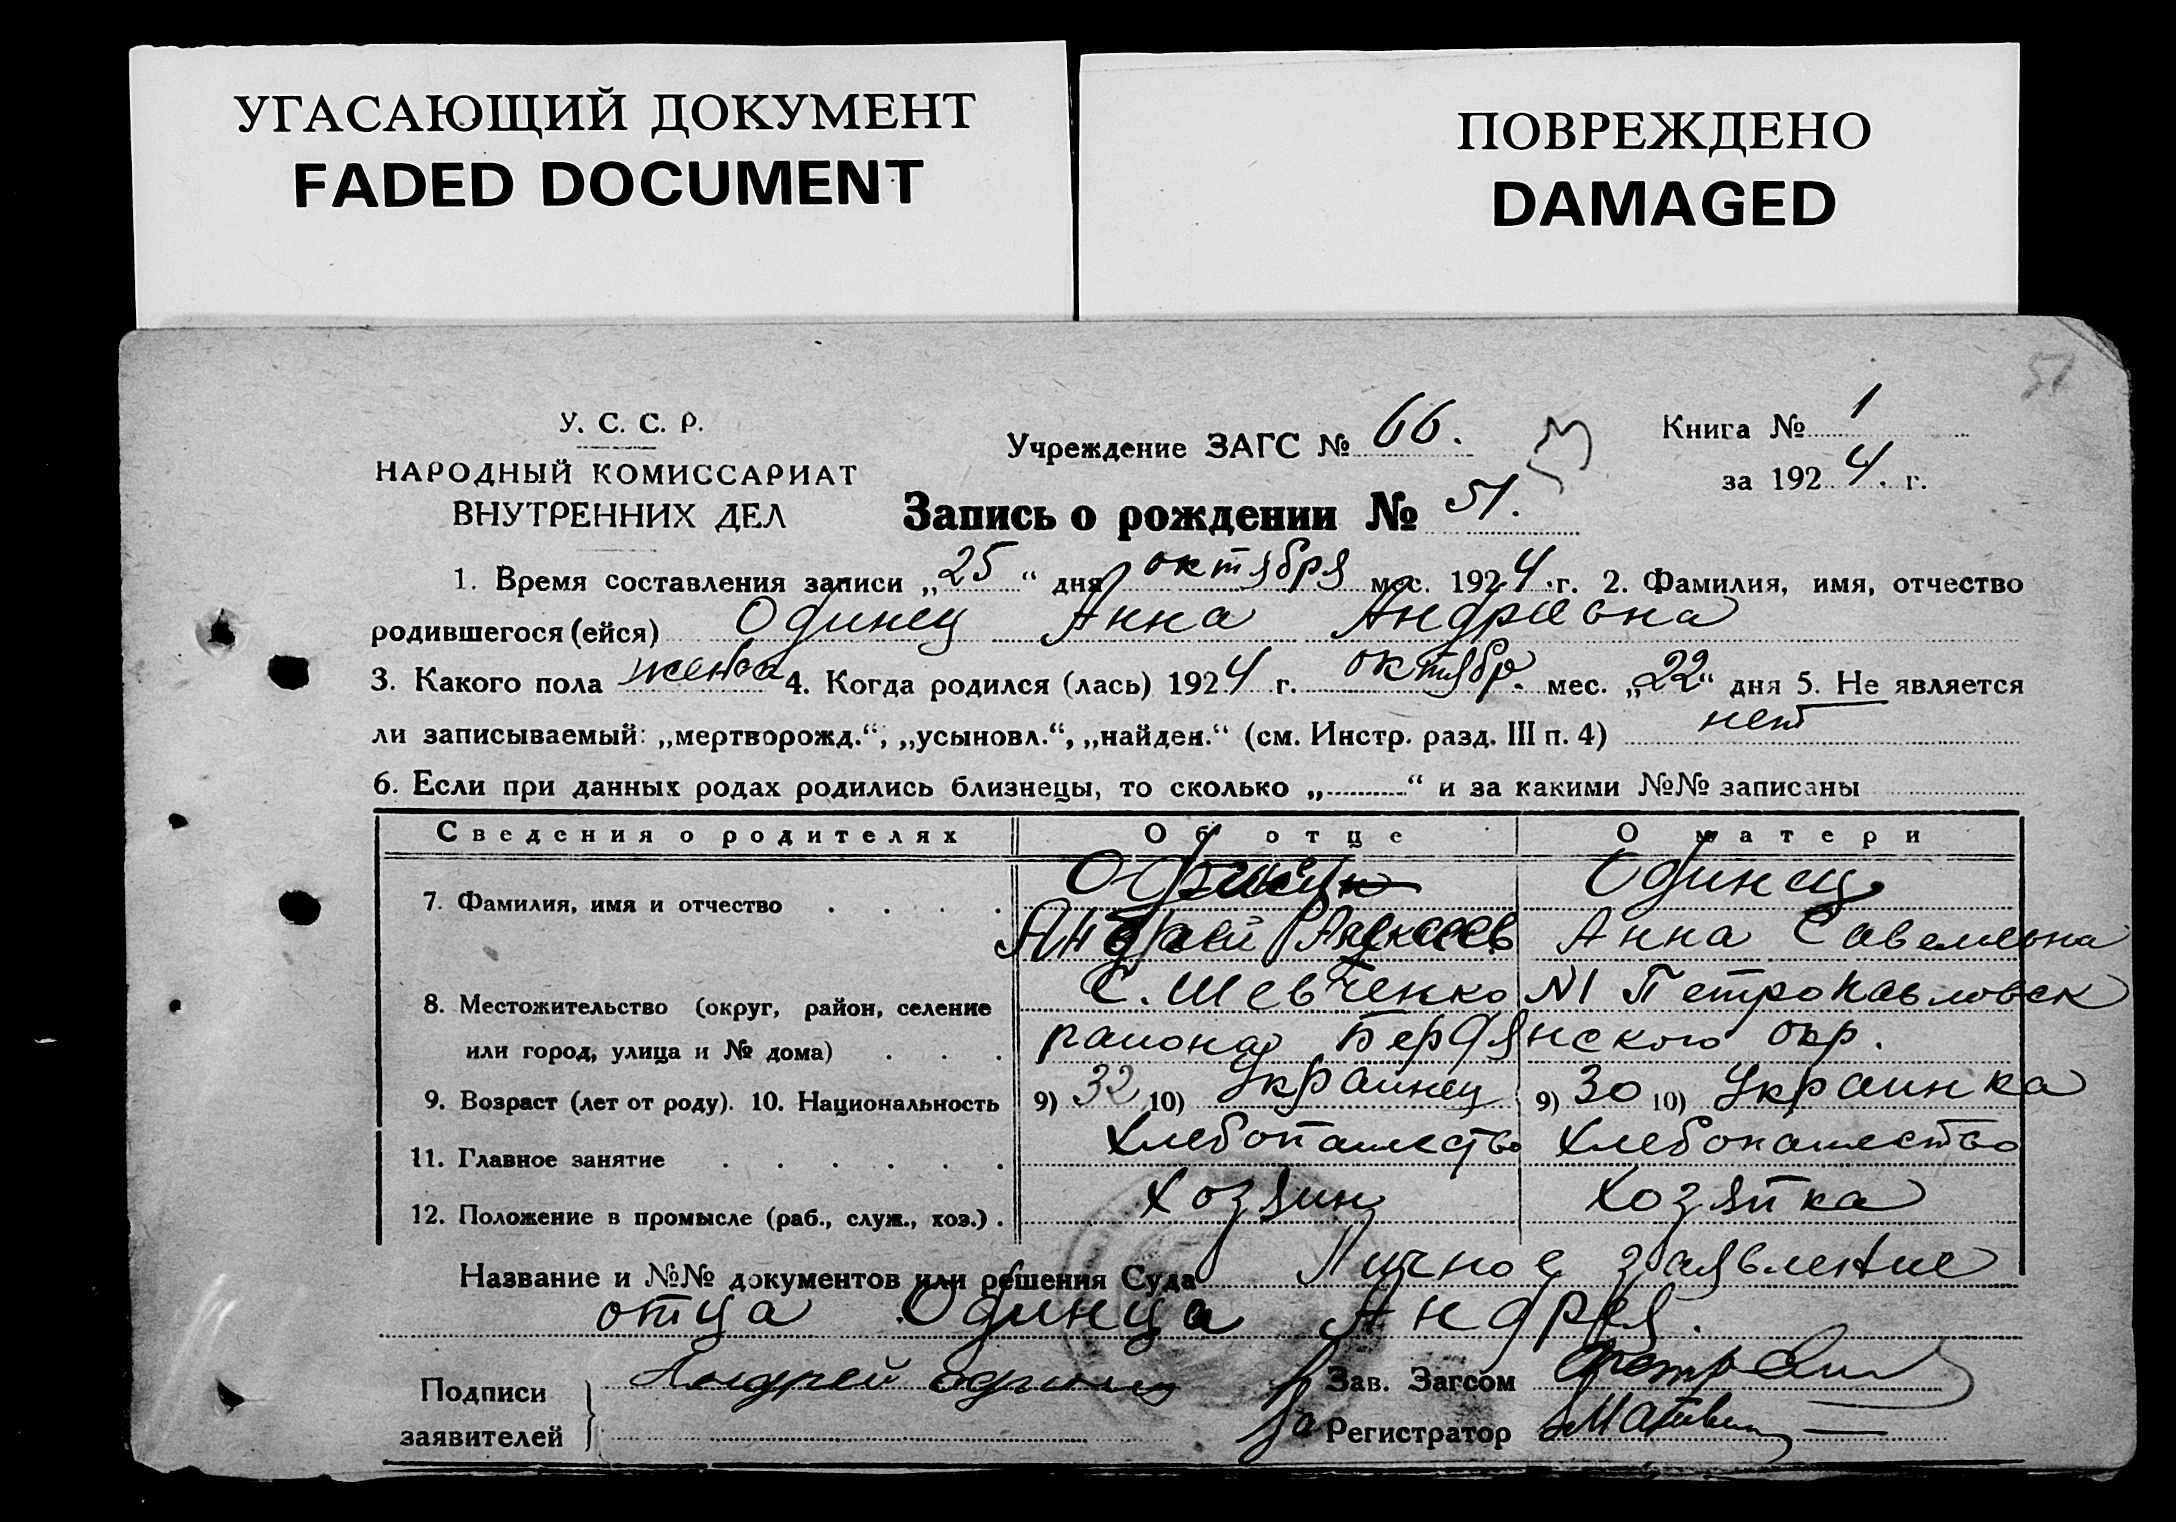 УГАСАЮЩИЙ ДОКУМЕНТ
FADED DOCUMENT
ПОВРЕЖДЕНО
DAMAGED
51
У. С. С. Р.
НАРОДНЫЙ КОМИССАРИАТ
ВНУТРЕННИХ ДЕЛ
Учреждение ЗАГС № 66.
Книга № 1
за 1924. г.
Запись о рождении № 51.
1. Время составления записи „25“ дня октября мес. 1924 г. 2. Фамилия, имя, отчество
родившегося (ейся) Одинец Анна Андреевна
3. Какого пола 4. Когда родился (лась) 1924 г. октябр. мес. „22“ дня 5. Не является
ли записываемый: „мертворожд.“, „усыновл.“, „найден.“ (см. Инстр. разд. III п. 4) нет
6. Если при данных родах родились близнецы, то сколько „..........“ и за какими №№ записаны
Сведения о родителях Об отце О матери
7. Фамилия, имя и отчество Одинец
Андрей Алексеев Анна Савелиевна
8. Местожительство (округ, район, селение С. Шевченко N1 Петропавловск
или город, улица и № дома) района Бердянского окр.
9. Возраст (лет от роду). 10. Национальность 9) 32 10) Украинец 9) 30 10) Украинка
11. Главное занятие Хлебопашество Хлебопашество
12. Положение в промысле (раб., служ., хоз.) . Хозяин Хозяйка
Название и №№ документов или решения Суда Личное заявление
отца Одинца Андрея.
Подписи
заявителей
Андрей Одинец
Зав. Загсом
за Регистратор